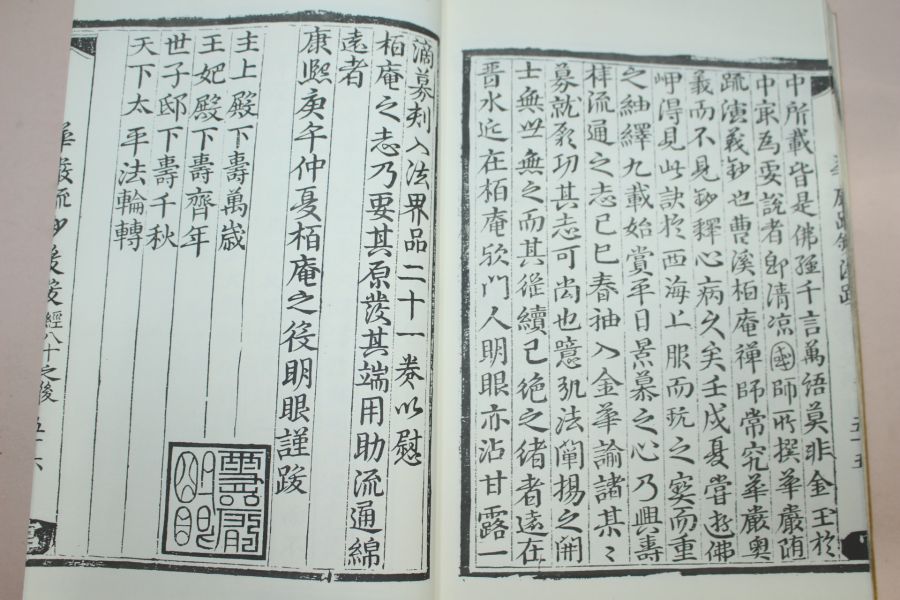 中所載皆是佛經千言萬語莫非金玉於
中最為要說者卽清凉國師所撰華嚴隨
疏演義鈔也曹溪栢庵禪師常究華嚴奧
義而不見鈔釋心病久矣壬戌夏嘗遊佛
岬得見此訣於西海上服而玩之寶而重
之紬繹九載始賞平日景慕之心乃興壽
梓流通之志己巳春袖入金華諭諸某〻
募就衆功其志可尙也噫弘法闡揚之開
士無世無之而其從續已絶之緒者遠在
晋水近在栢庵歟門人明眼亦沾甘露一
滴募刋入法界品二十一卷以慰
栢庵之志乃要其原發其端用助流通綿
遠者
康熙庚午仲夏栢庵之後明眼謹跋
主上殿下壽萬歲
王妃殿下壽齊年
世子邸下壽千秋
天下太平法輪轉
華嚴疏鈔後跋 經八十之後 五十六